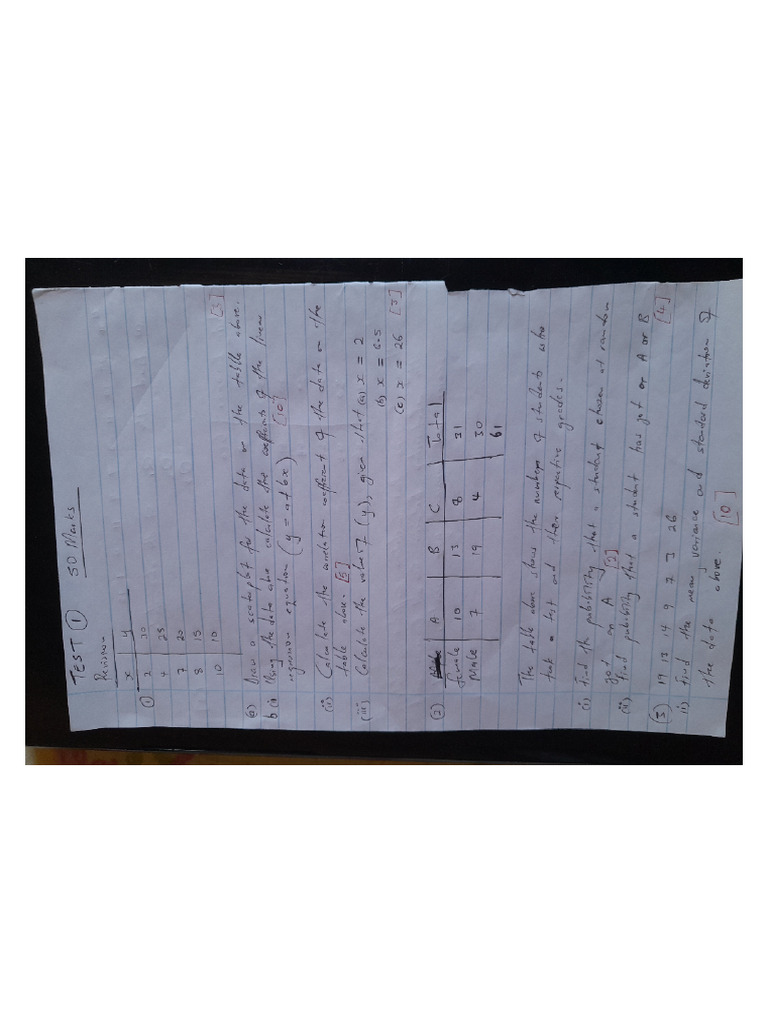 TEST ① 50 Marks
Revision
x y
① 2 30
4 25
7 20
8 15
10 10
[3]
(a) Draw a scatterplot for the data in the table above.
b (i) Using the data above calculate the coefficients of the linear
regression equation (y = a + bx) [10]
(ii) Calculate the correlation coefficient of the data in the
table above. [5]
(iii) Calculate the value of (y), given that (a) x = 2
(b) x = 6.5
(c) x = 26 [3]
(2) A B C Total
Female 10 13 8 31
MALE 7 19 4 30
61
The table above shows the numbers of students who
took a test and their respective grades.
(i) Find the probability that a student chosen at random
got an A
(ii) Find probability that a student has got an A or B [4]
③ 19 13 14 9 7 3 26
(i) Find the mean, variance and standard deviation of
the data above. [10]